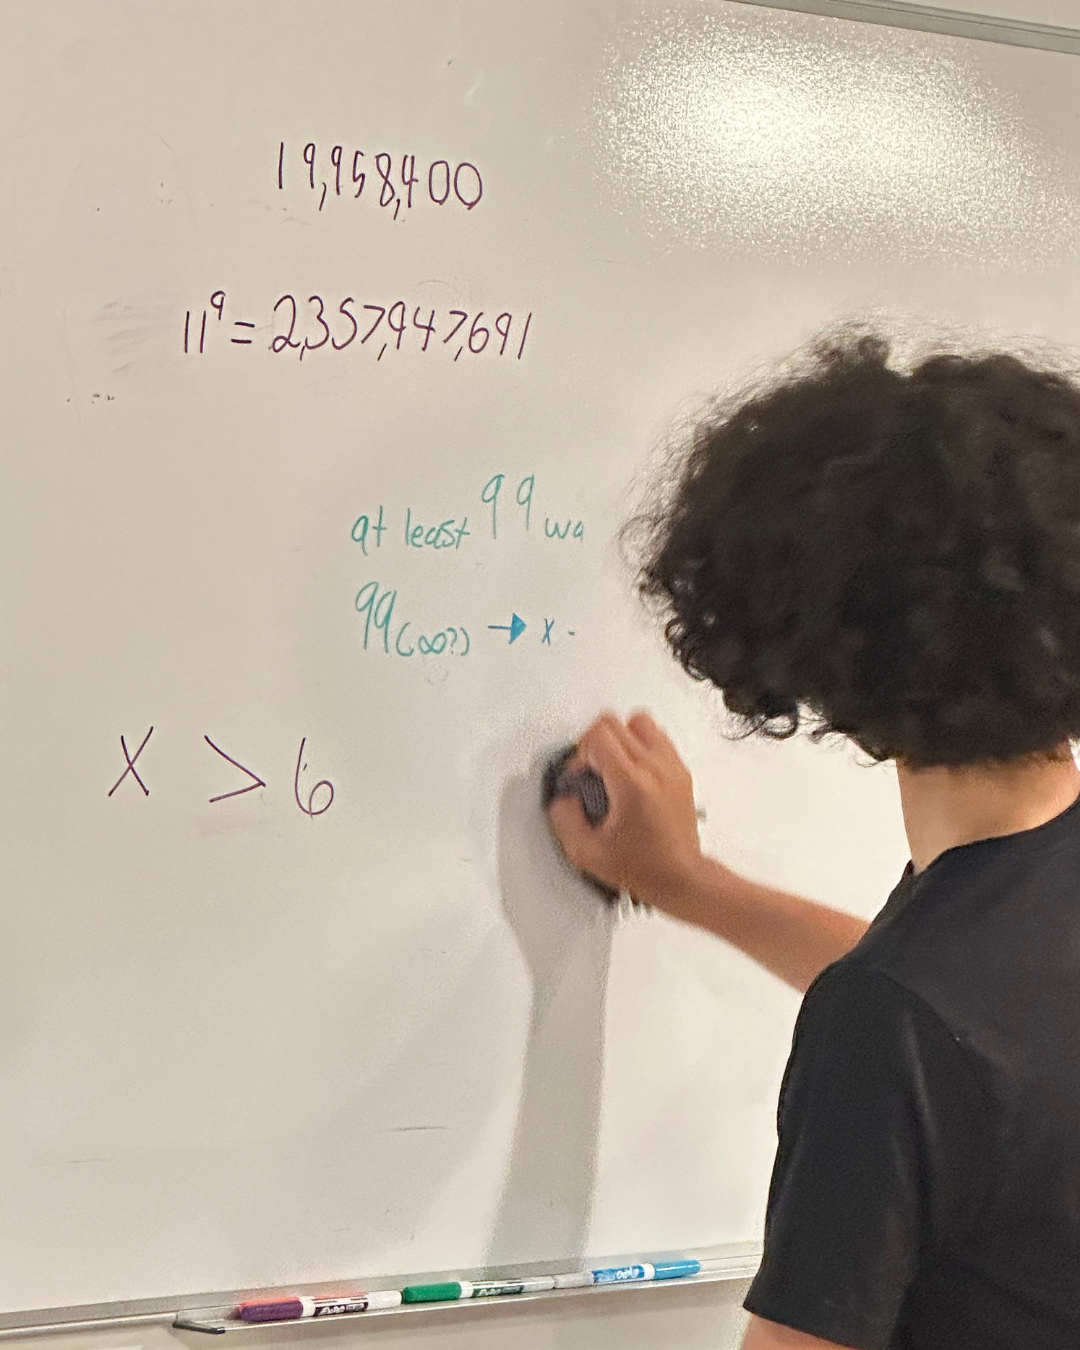 19,958,400
11⁹ = 2,357,947,691
at least 99 wa
99(∞?) → x -
x > 6
EXPO